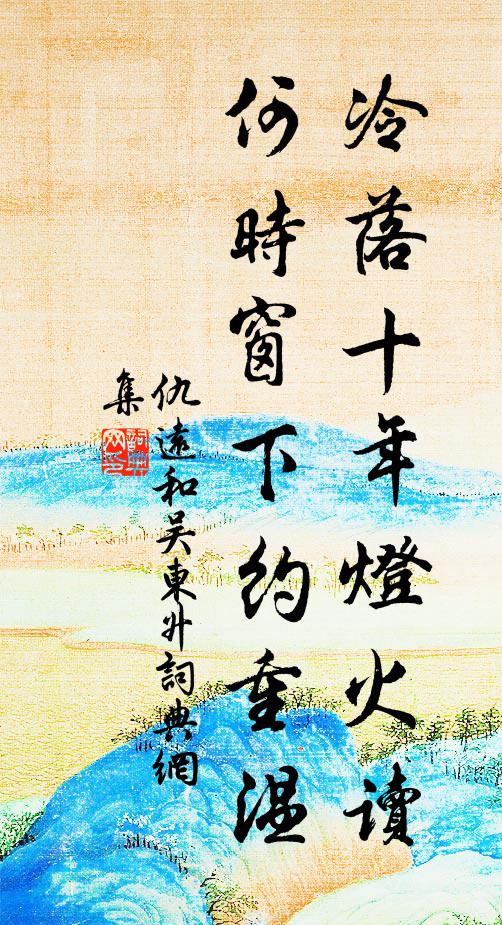 冷落十年燈火讀
何時窗下約重温
仇遠和吴東升詞典網
集